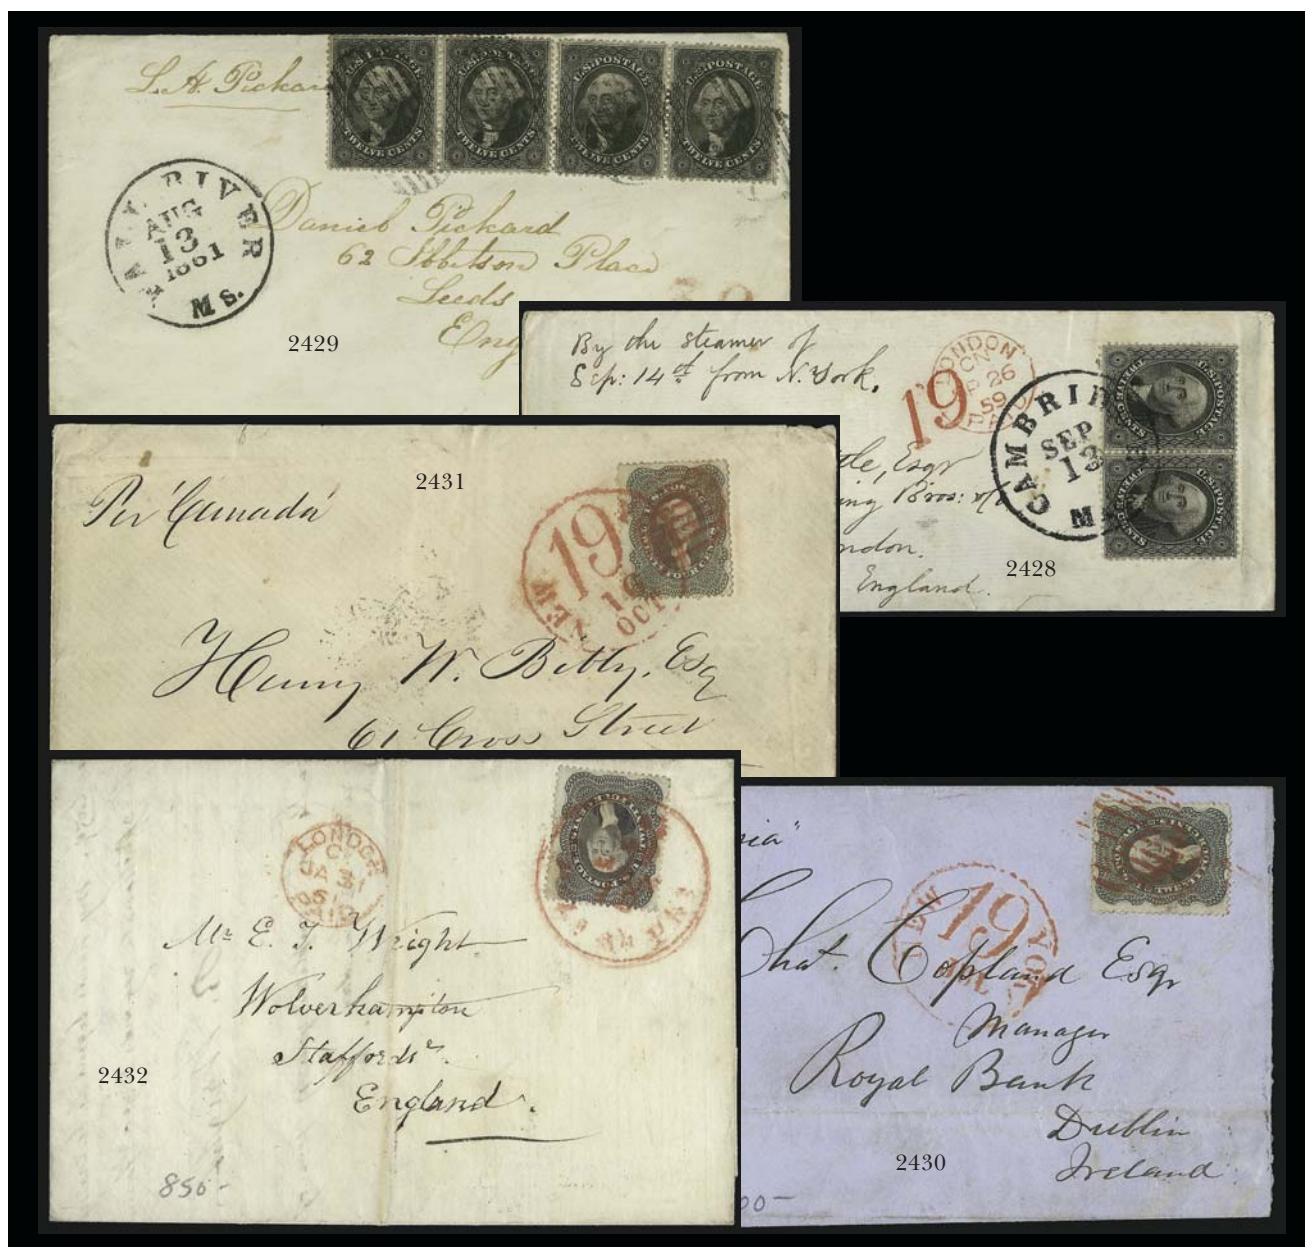 L. A. Pickar
U.S. POSTAGE
TWELVE CENTS
U.S. POSTAGE
TWELVE CENTS
U.S. POSTAGE
TWELVE CENTS
U.S. POSTAGE
TWELVE CENTS
FALL RIVER
AUG
13
1861
Ms.
Daniel Pickard
62 Ibbetson Place
Leeds
Eng
2429
By the steamer of
Sep: 14th from N. York.
19
LONDON
SP 26
59
PAID
CAMBRID
SEP
13
U.S. POSTAGE
TWELVE CENTS
U.S. POSTAGE
TWELVE CENTS
Esqr
ing Bros: of
ndon.
England.
2428
2431
Per 'Canada'
NEW
19
OCT
Henry W. Esq
61 Cross Street
LONDON
Mr. E. T. Wright
Wolverhampton
Staffords.
England.
2432
850-
ia"
NEW YOR
19
Chas. Copland Esqr
Manager
Royal Bank
Dublin
Ireland
2430
00-